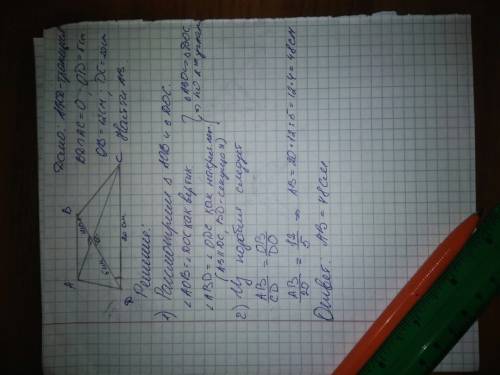 Дано: ABCD-трапеция
BD∩AC=O; OD=5см
OB=12см; DC=20см
Найти AB
A
B
C
D
O
12см
5см
20 см
Решение:
1) Рассмотрим ΔAOB и ΔDOC.
∠AOB=∠DOC как вертик
∠ABD=∠ODC как накрест леж
(AB∥DC, BD-секущая)
2) Из подобия следует
AB/CD = OB/DO
AB/20 = 12/5 ⇒ AB=20*12:5=12*4=48см
Ответ: AB=48см